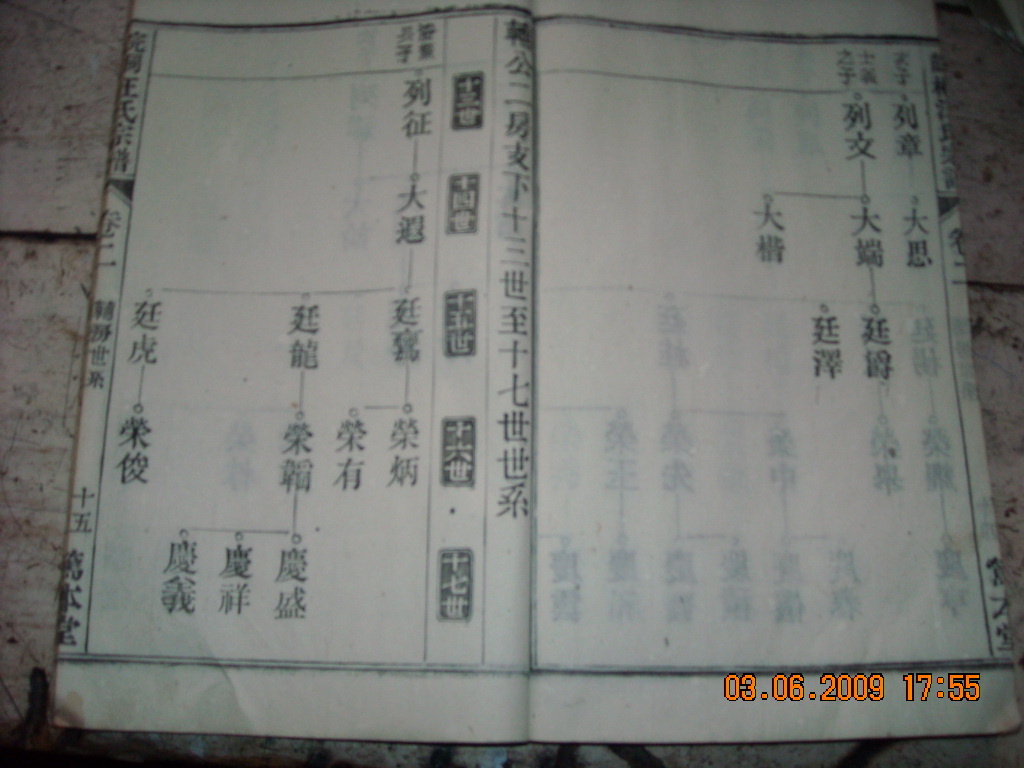 長子
列章
大思
士義
之子
列文
大端
大楷
廷爵
廷澤
輔公二房支下十三世至十七世世系
十三世
十四世
十五世
十六世
十七世
長子
列征
大遐
廷鸞
廷龍
廷虎
榮炳
榮有
榮韜
榮俊
慶盛
慶祥
慶義
皖桐汪氏宗譜
卷二
輔房世系
十五
卷二
03.06.2009 17:55